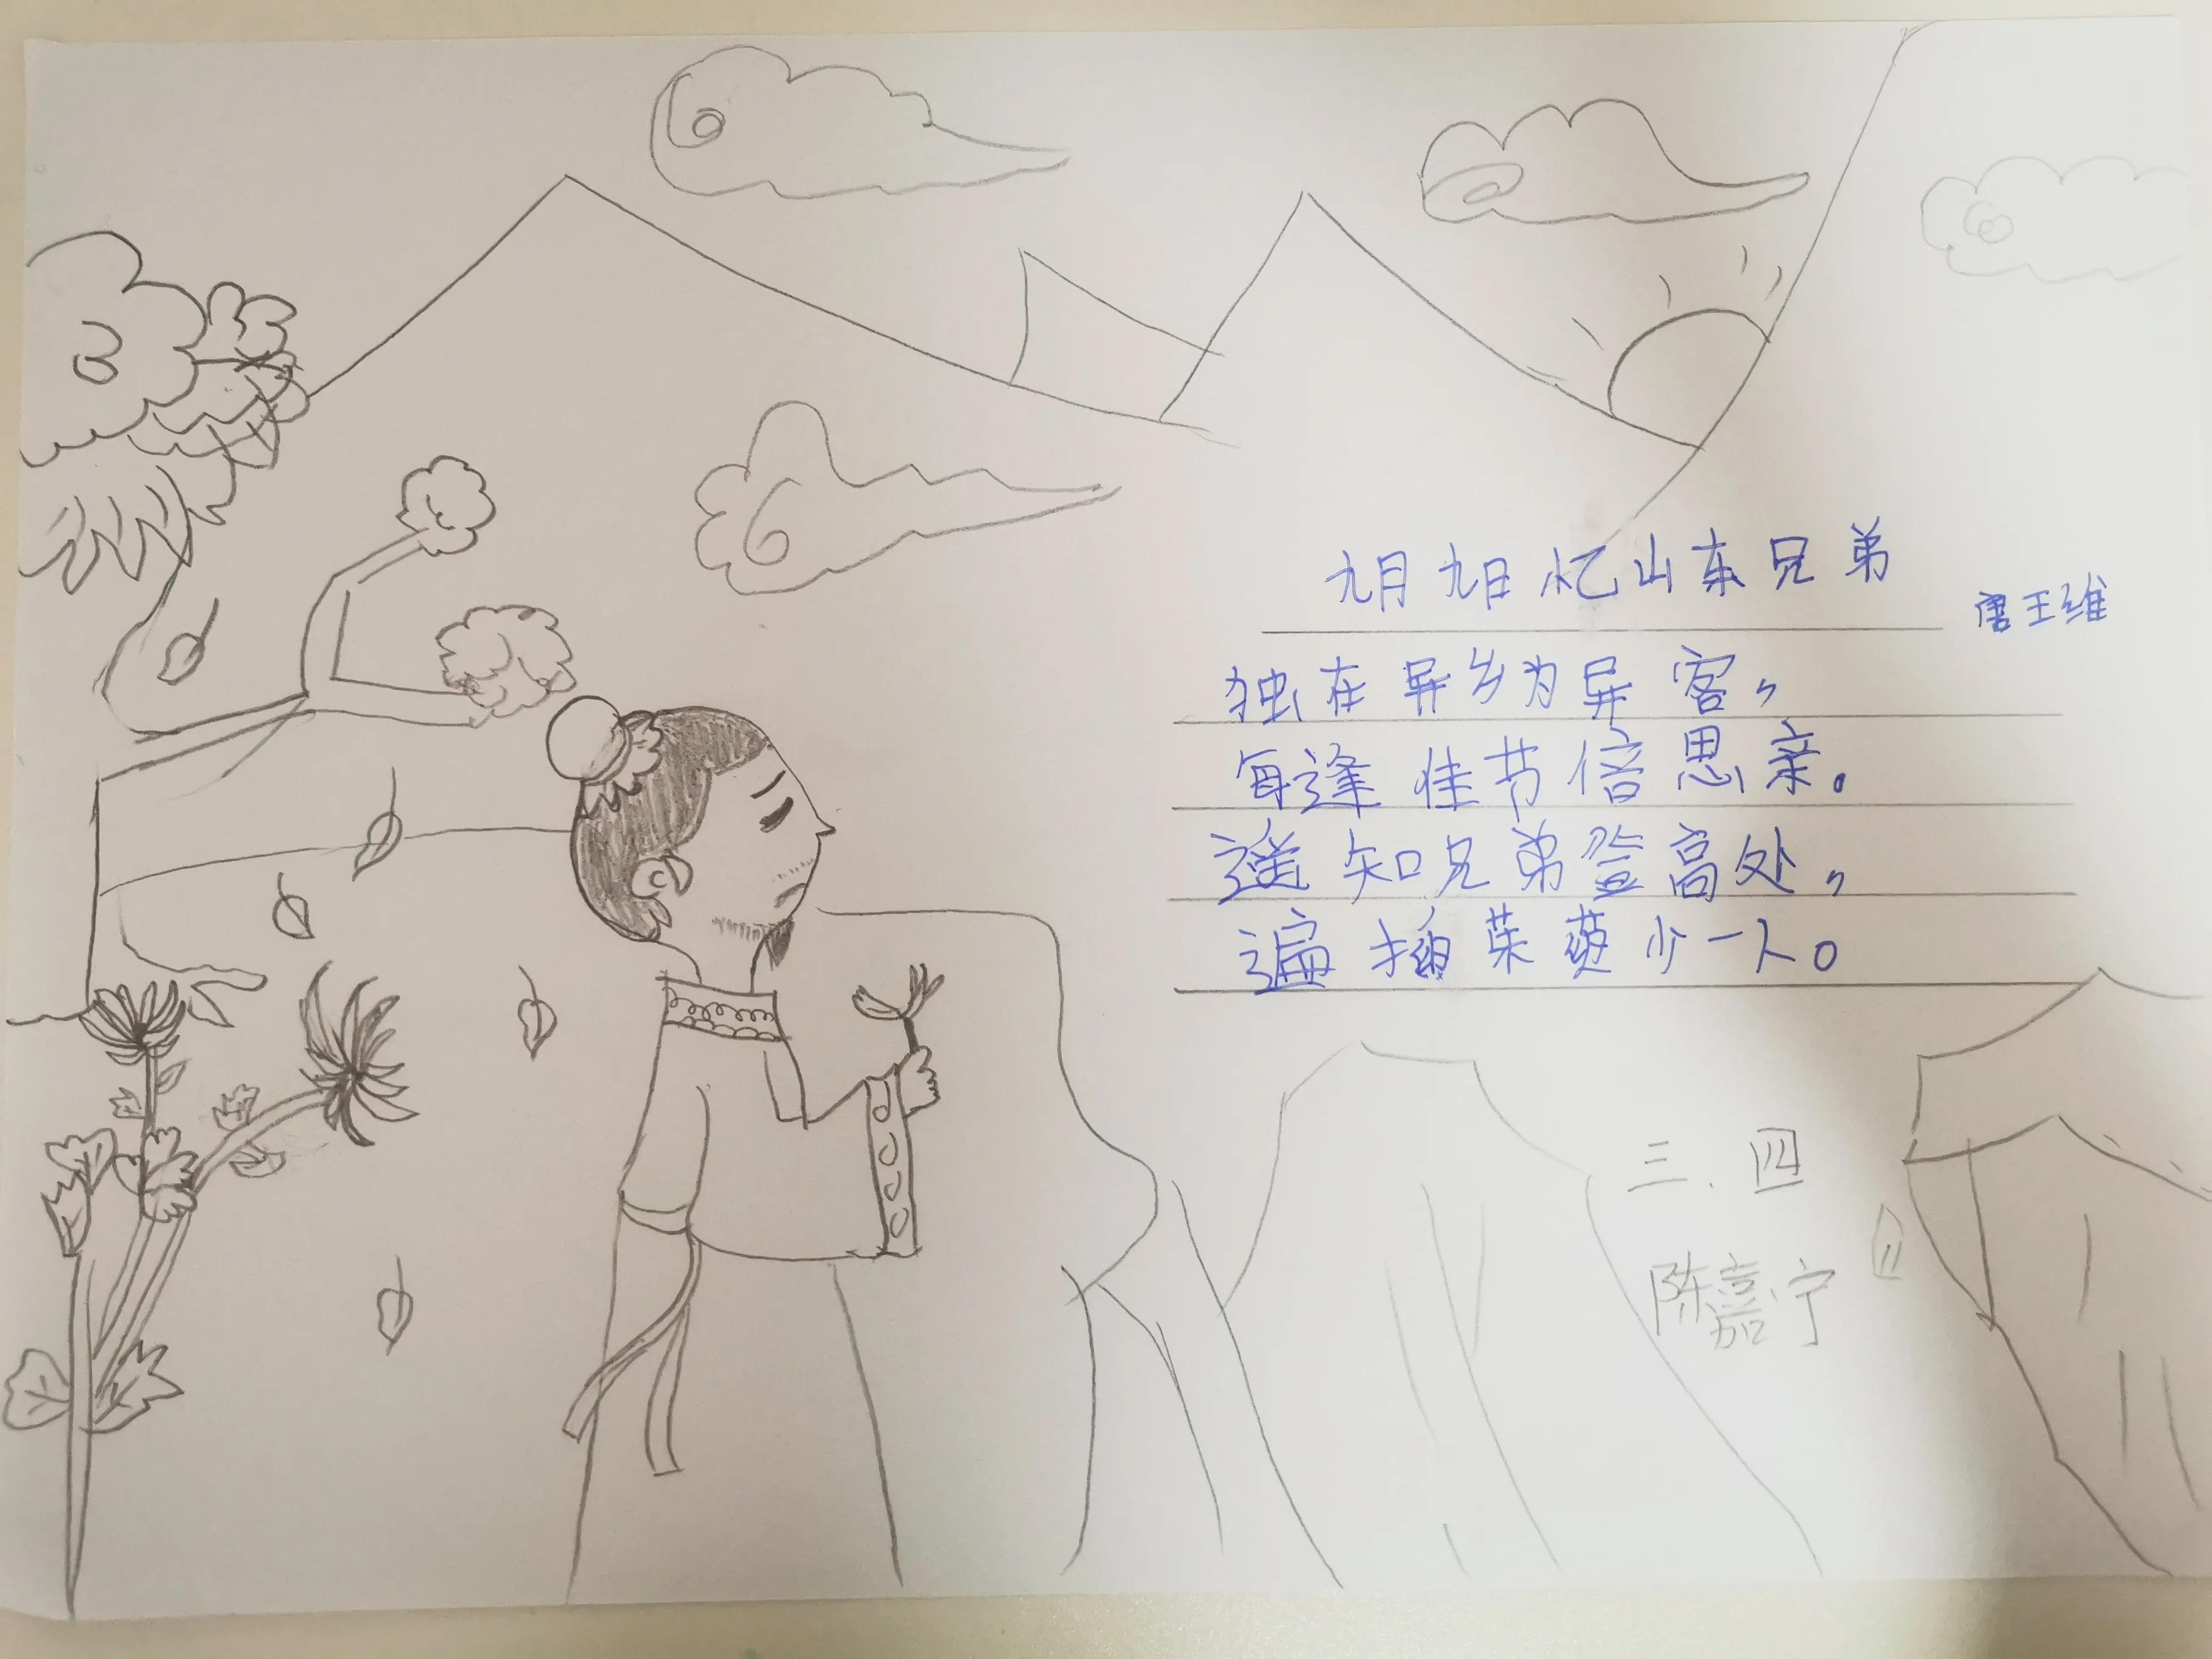 九月九日忆山东兄弟
唐王维
独在异乡为异客，
每逢佳节倍思亲。
遥知兄弟登高处，
遍插茱萸少一人。
三.四
陈嘉宁